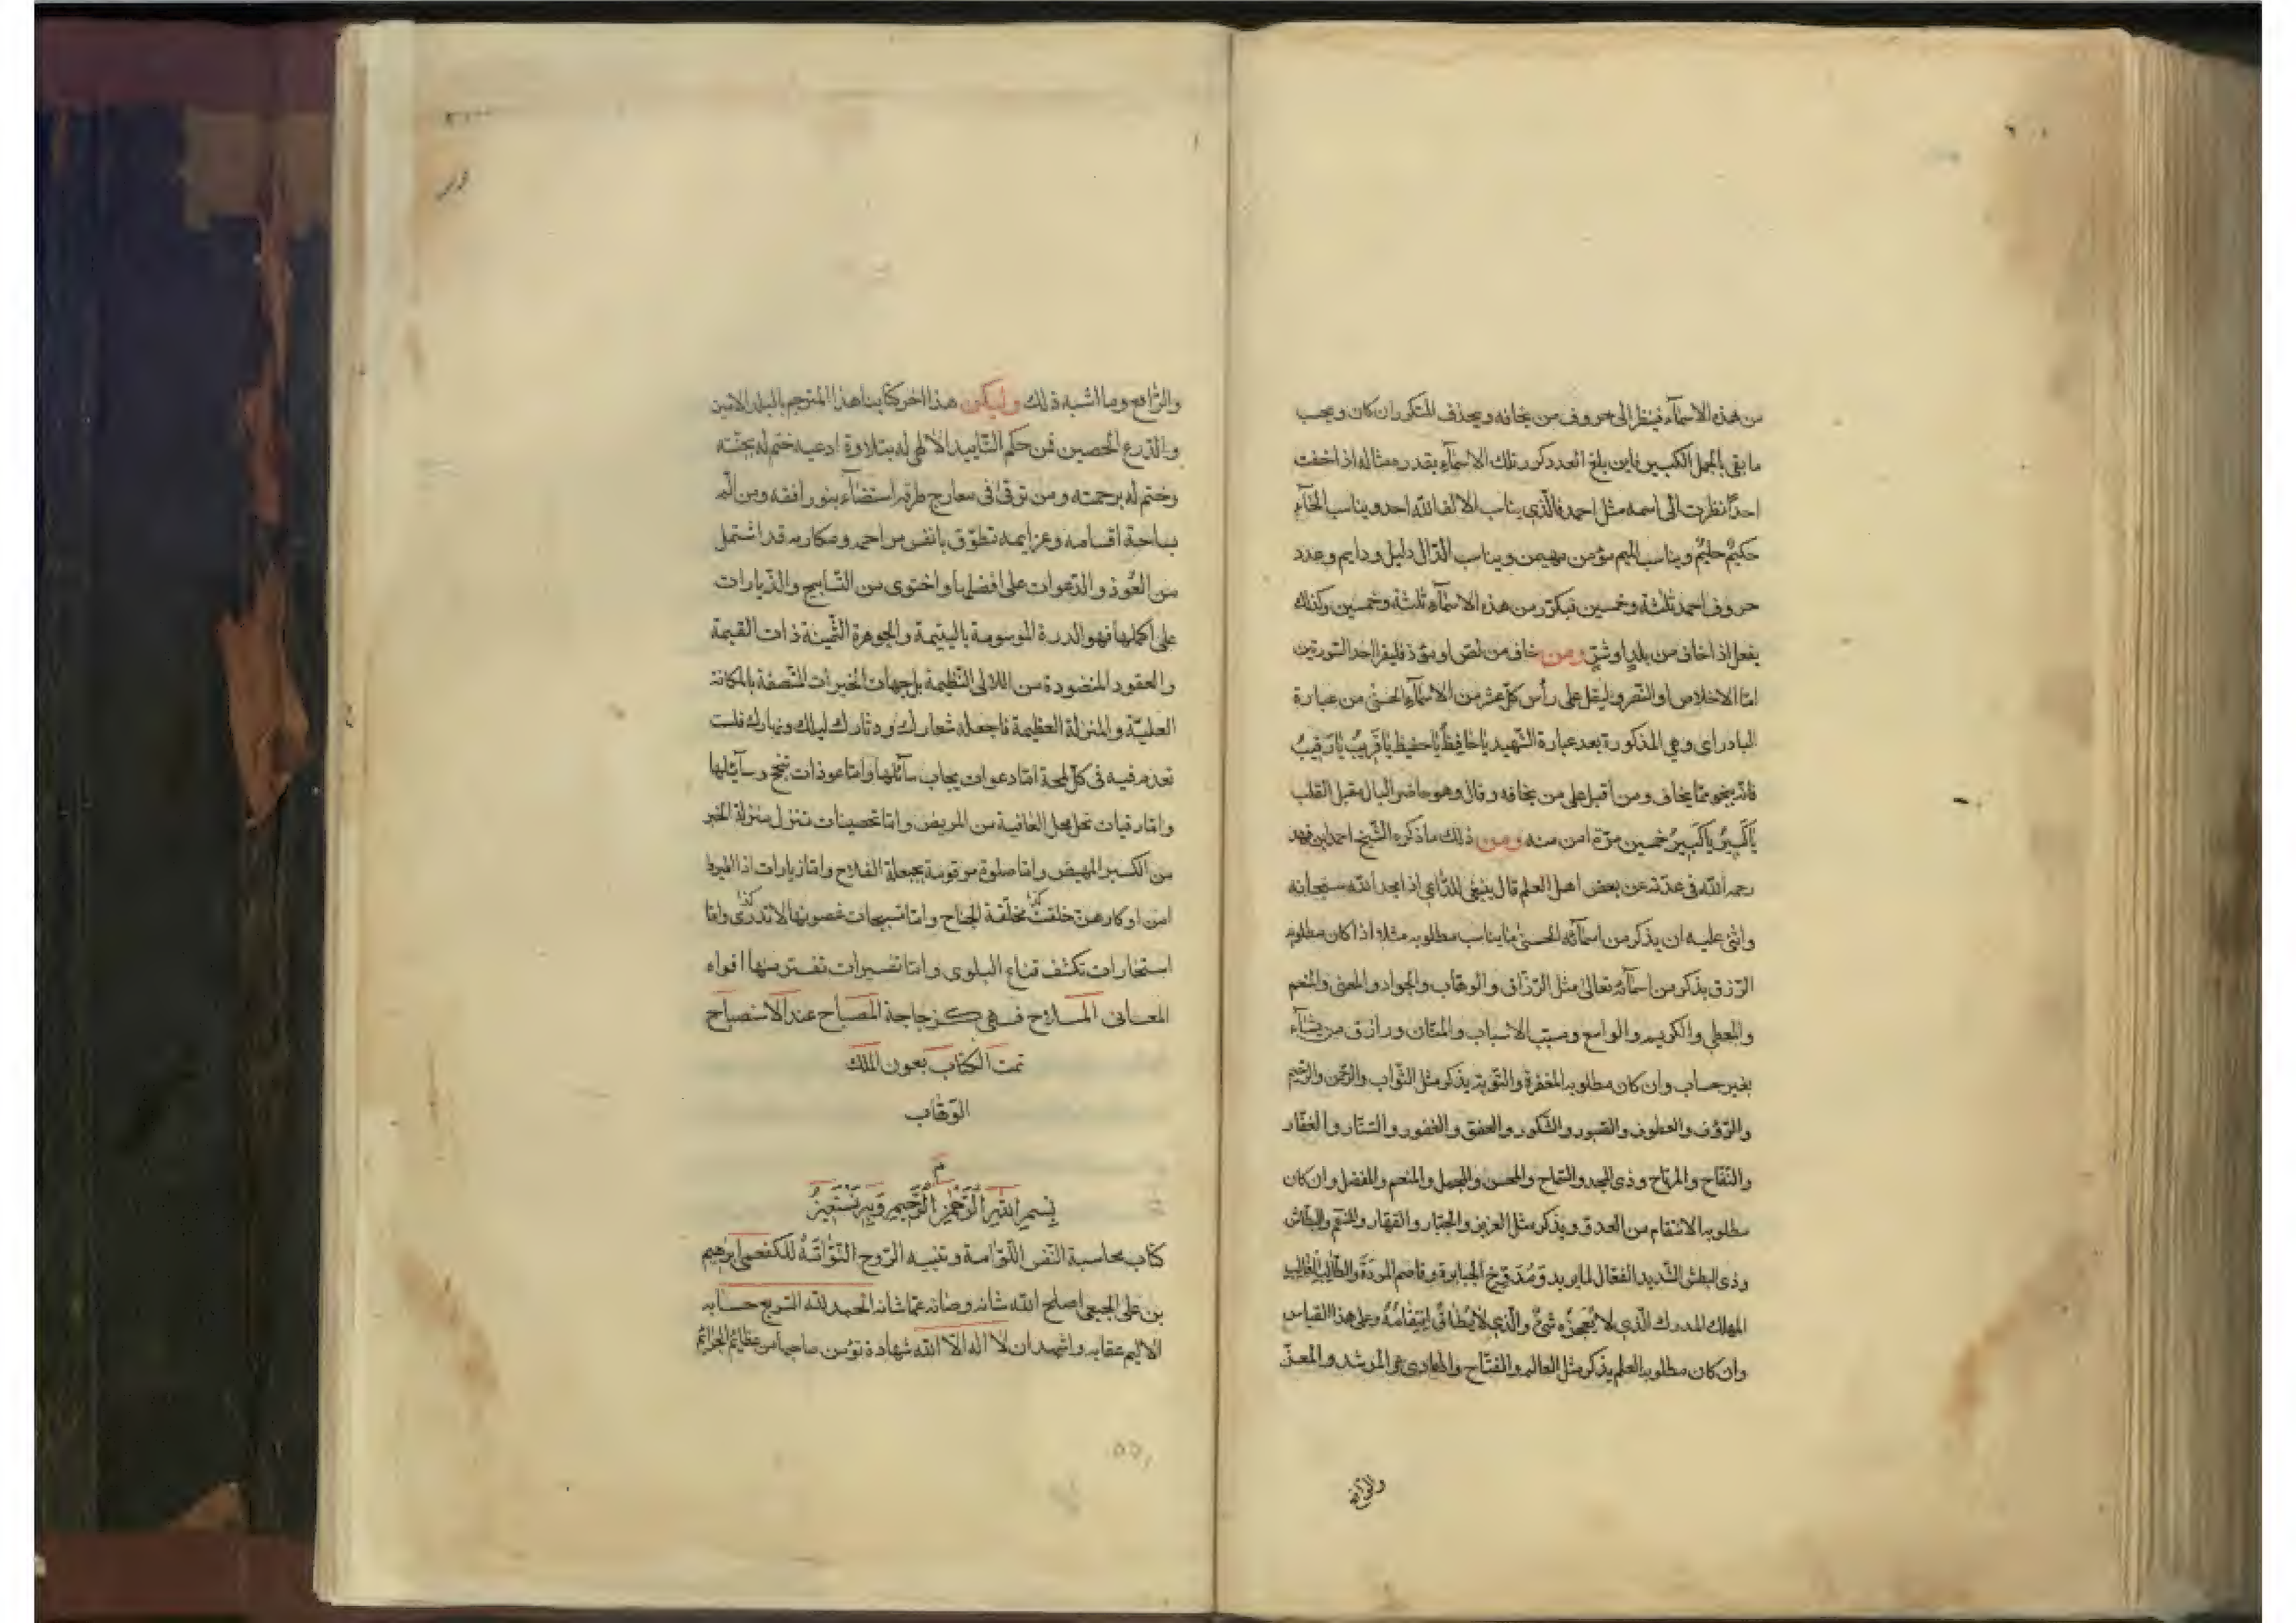 من هذه الاسمآء فينظر الى حروف من يخافه ويحذف المتكرر ان كان ويحسب
ما بقى بالجمل الكبير فاين بلغ العدد كرر تلك الاسمآء بقدره مثاله اذا خفت
احدًا نظرت الى اسمه مثل احمد فالّذي يناسب الالف الله احد ويناسب الحآء
حكيمٌ حليمٌ ويناسب الميم مؤمن مهيمن ويناسب الدّال دليل ودايم وعدد
حروف احمد ثلثة وخمسين فيكرّر من هذه الاسمآء ثلثة وخمسين وكذلك
يفعل اذا خاف من بلدٍ او شئٍ ومن خاف من لصّ او مؤذ فليقرا احد السّورتين
امّا الاخلاص او النّصر وليقل على رأس كلّ عشر من الاسمآء الحسنى من عبارة
البادراى وهي المذكورة بعد عبارة الشّهيد يا حافظُ يا حفيظ يا قريبُ يا رقيبُ
فانّه ينجو ممّا يخاف ومن اقبل على من يخافه وقال وهو حاضر البال مقبل القلب
يا كبيرُ يا كبيرُ خمسين مرّة امن منه ومن ذلك ما ذكره الشّيخ احمد ابن فهد
رحمه الله في عدّته عن بعض اهل العلم قال ينبغى للدّاعي اذا مجد الله سبحانه
واثنى عليه ان يذكر من اسمآئه الحسنى ما يناسب مطلوبه مثلا اذا كان مطلوبه
الرّزق يذكر من اسمآئه تعالى مثل الرّزّاق والوهّاب والجواد والمغنى والمنعم
والمعطى والكريم والواسع ومسبّب الاسباب والمنّان ورازق من يشآء
بغير حساب وان كان مطلوبه المغفرة والتّوبة يذكر مثل التّواب والرّحمن والرّحيم
والرّؤف والعطوف والصّبور والشّكور والعفوّ والغفور والسّتّار والغفّار
والنّفّاح والمرتاح وذى المجد والسّماح والمحسن والمجمل والمنعم والمفضل وان كان
مطلوبه الانتقام من العدوّ يذكر مثل العزيز والجبّار والقهّار والمنتقم والبطّاش
وذى البطش الشّديد الفعّال لما يريد ومُدوّخ الجبابرة وقاصم المردة والطّالب الغالب
المهلك المدرك الّذي لا يُعجزه شئٌ والّذي لا يُطاقُ انتقامُه وعلى هذا القياس
وان كان مطلوبه العلم يذكر مثل العالم والفتّاح والهادى والمرشد والمعزّ
والرّافع
والرّافع وما اشبه ذلك وليكن هذا اخر كتابنا هذا المترجم بالبلد الامين
والدّرع الحصين فمن حكم التّاييد الالهي له بتلاوة ادعيه ختم له بجنّته
وختم له برحمته ومن توقّى في معارج طرقه استضآء بنور افقه ومن المّ
بساحة اقسامه وعزايمه تطوّق بانفس مراحمه ومكارمه قد اشتمل
من العُوذ والدّعوات على افضلها واحتوى من التّسابيح والزّيارات
على اكملها فهو الدرة الموسومة باليتيمة والجوهرة الثّمينة ذات القيمة
والعقود المنضودة من اللالى النّظيمة بل جهات الخيرات المتّصفة بالمكانة
العليّة والمنزلة العظيمة فاجعله شعارك ودثارك ليلك ونهارك فلست
تعدم فيه في كلّ لمحة امّا دعوات يجاب سآئلها وامّا عوذات تنجح وسآيلها
وامّا رقيات تحل محل العافية من المريض وامّا تحصينات تنزل منزلة الجبر
من الكسير المهيض وامّا صلوة مرقومة بجعلة الفلاح وامّا زيارات اذا الطيرها
امن اوكارهن خلقت مخلّقة الجناح وامّا تسبيحات غصونها لا تدرى وامّا
كذا كذا
استخارات تكشف قناع البلوى وامّا تفسيرات تفتر منها افواه
المعانى الملاح فهي كزجاجة المصباح عند الاستصباح
تمت الكتاب بعون الملك
الوهّاب
م
بِسمِ اللّهِ الرّحمنِ الرّحيمِ وَبِهِ نَسْتَعِينُ
كتاب محاسبة النّفس اللّوّامة وتنبيه الرّوح النّوّامَةُ للكفعمى ابرهيم
بن على الجبعى اصلح الله شانه وصانه عمّا شانه الحمد للّه السّريع حسابه
الاليم عقابه واشهد ان لا اله الا الله شهادة تؤمن صاحبها من عظائم الجرائم